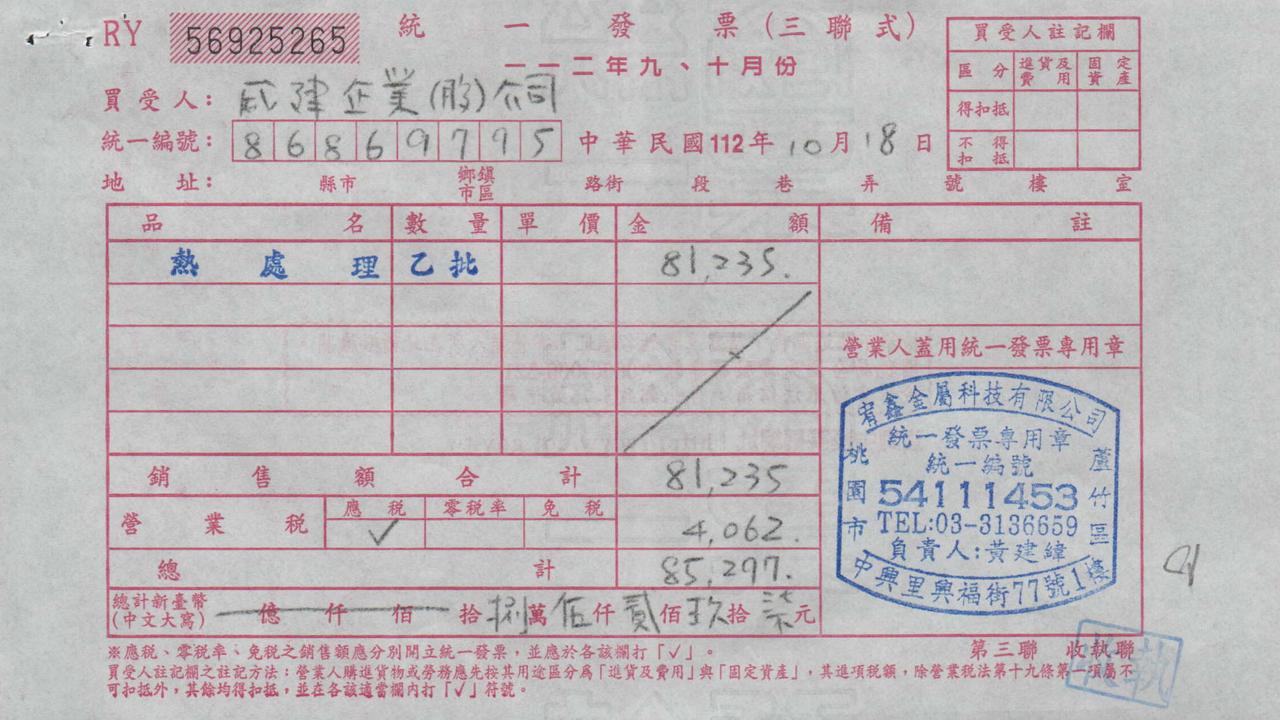 RY 56925265 統一發票(三聯式)
一一二年九、十月份
買受人註記欄
區分 進貨及費用 固定資產
得扣抵
不得扣抵
買受人: 企業(股)公司
統一編號: 86869795 中華民國112年10月18日
地址: 縣市 鄉鎮市區 路街 段 巷 弄 號 樓 室
品名 數量 單價 金額 備註
熱處理 乙批 81,235.
營業人蓋用統一發票專用章
銷售額合計 81,235
營業稅 應稅 ✓ 零稅率 免稅 4,062.
總計 85,297.
總計新臺幣(中文大寫) 億仟佰拾捌萬伍仟貳佰玖拾柒元
宥鑫金屬科技有限公司
統一發票專用章
統一編號
54111453
TEL:03-3136659
負責人:黃建緯
桃園市
蘆竹區
中興里興福街77號1樓
第三聯 收執聯
※應稅、零稅率、免稅之銷售額應分別開立統一發票,並應於各該欄打「✓」。
買受人註記欄之註記方法:營業人購進貨物或勞務應先按其用途區分為「進貨及費用」與「固定資產」,其進項稅額,除營業稅法第十九條第一項屬不
可扣抵外,其餘均得扣抵,並在各該適當欄內打「✓」符號。